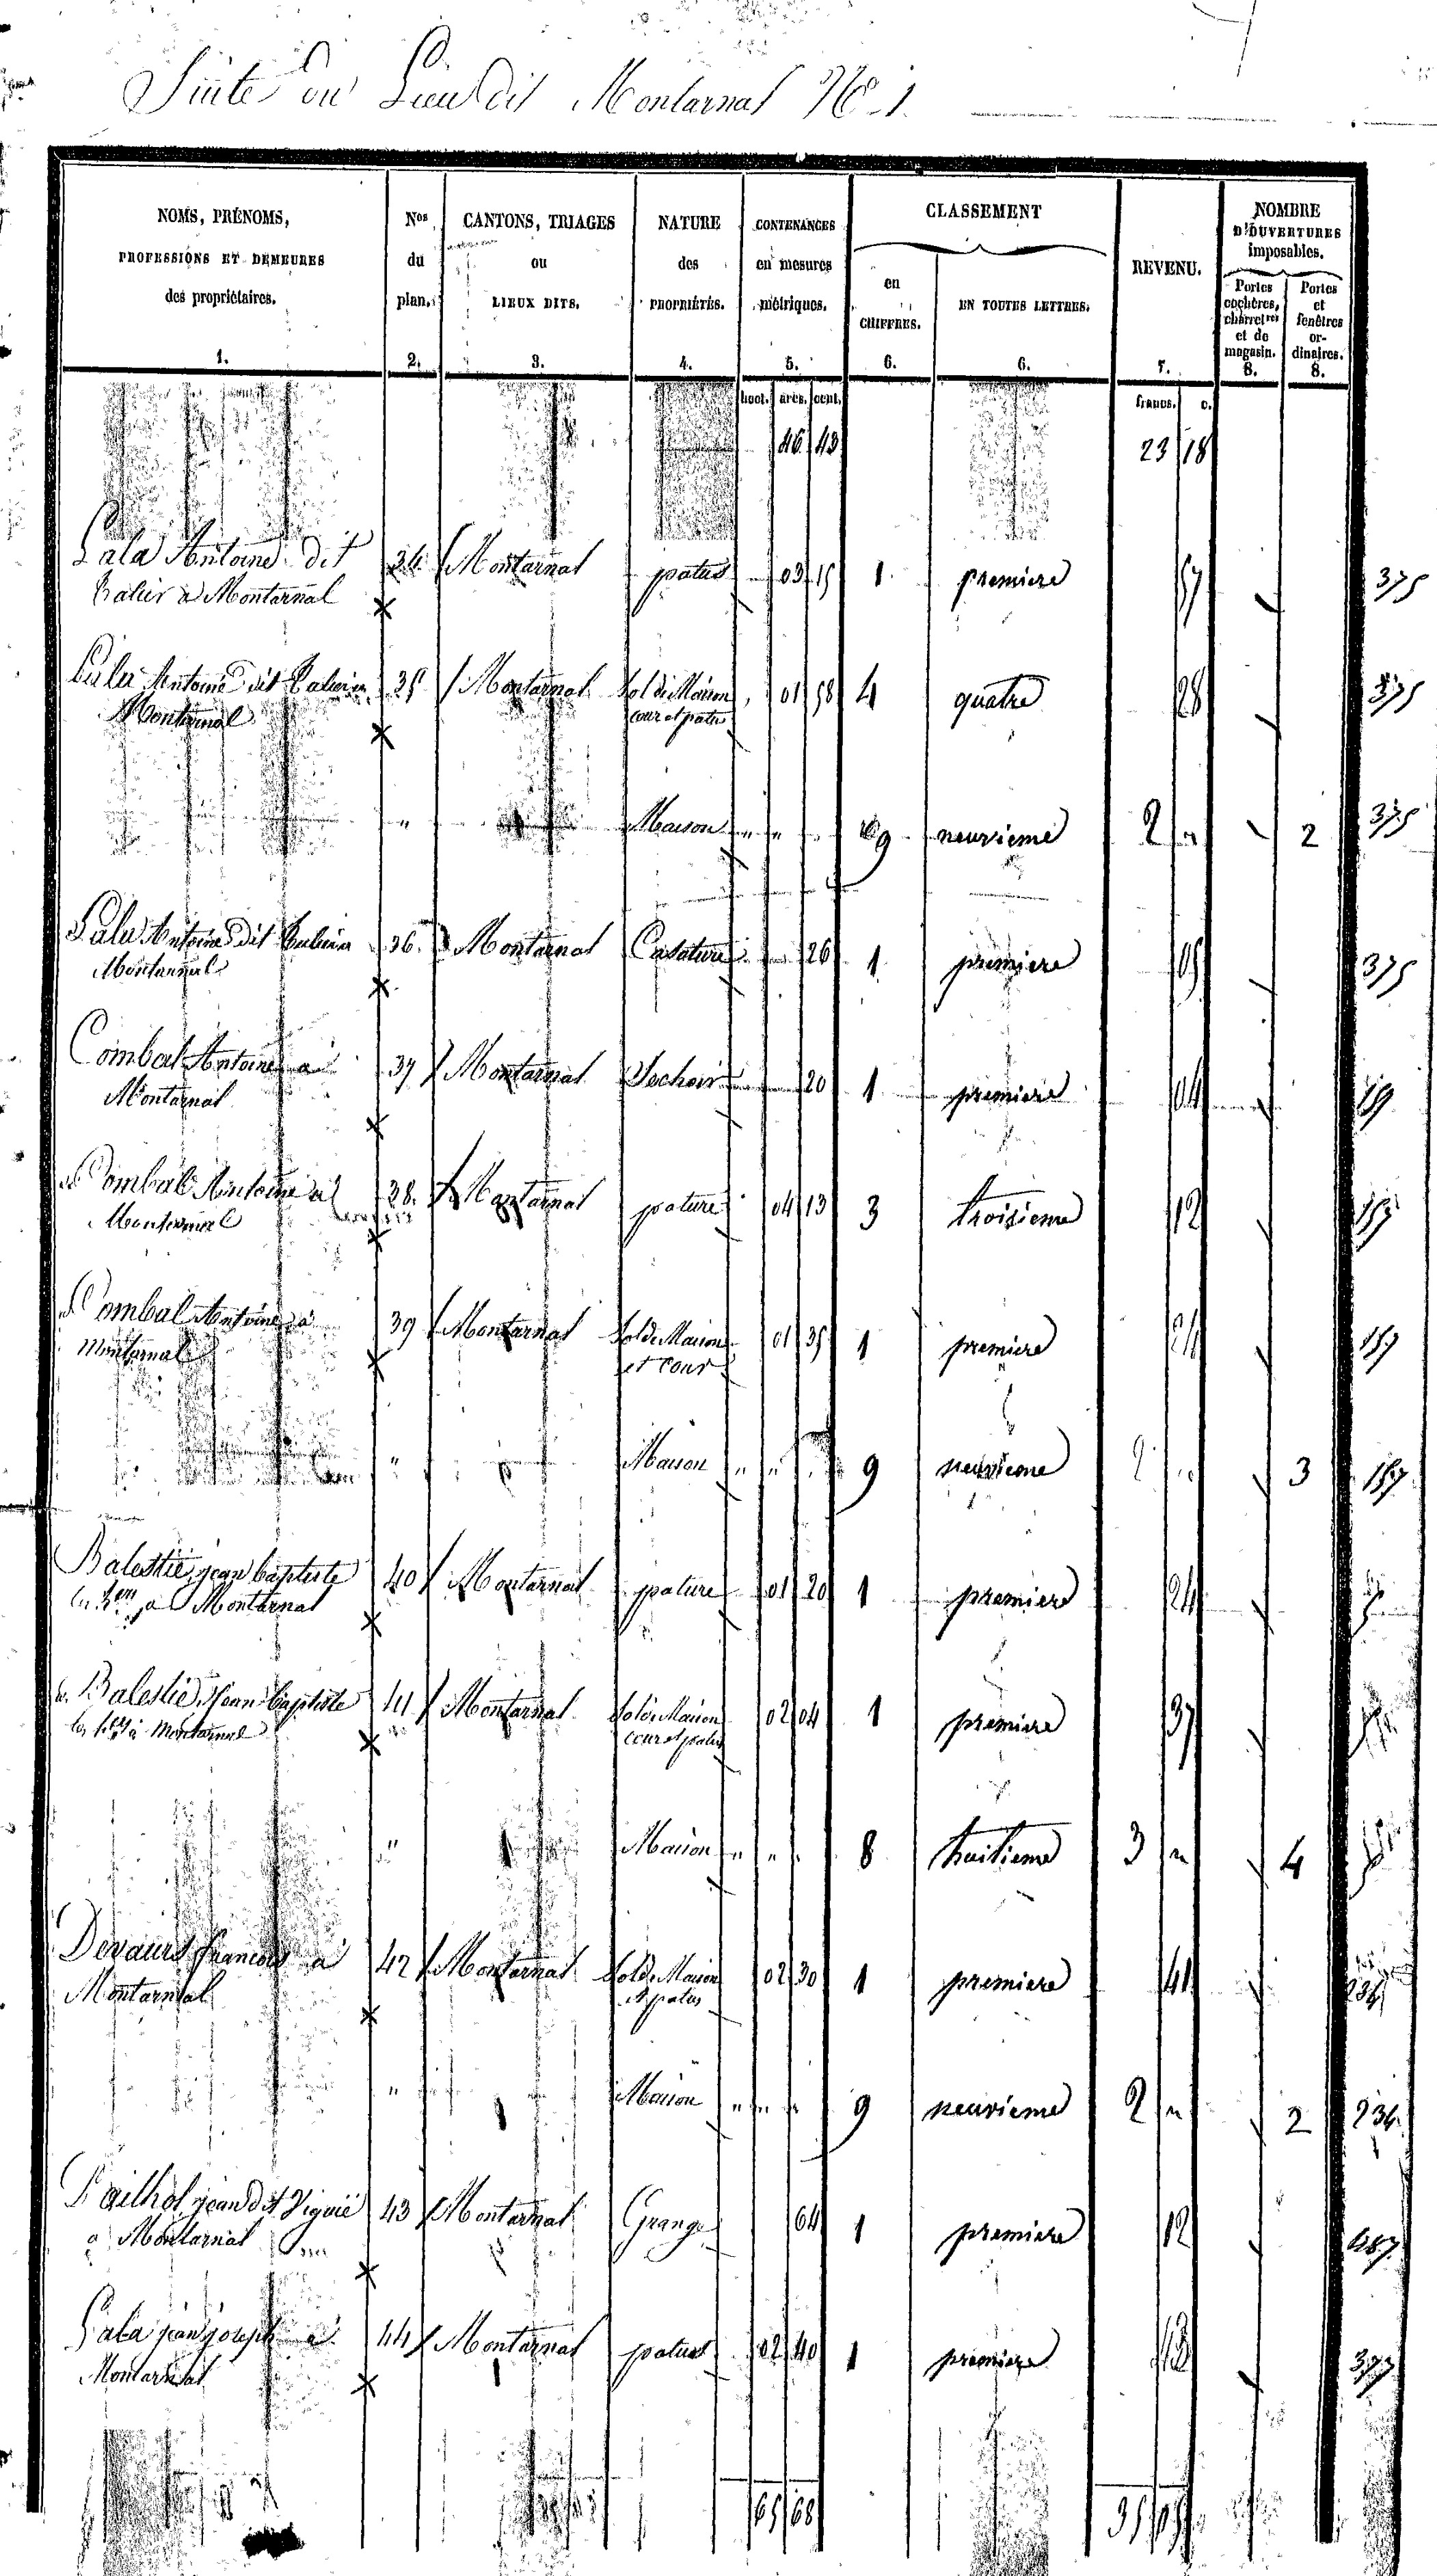 Suite du Lieu dit Montarnal No 1.
NOMS, PRÉNOMS, PROFESSIONS ET DEMEURES des propriétaires. 1.
Nos du plan. 2.
CANTONS, TRIAGES ou LIEUX DITS. 3.
NATURE des PROPRIÉTÉS. 4.
CONTENANCES en mesures métriques. 5.
CLASSEMENT
en CHIFFRES. 6.
EN TOUTES LETTRES. 6.
REVENU. 7.
NOMBRE D'OUVERTURES imposables.
Portes cochères, charretres et de magasin. 8.
Portes et fenêtres ordinaires. 8.
hect. ares. cent. francs. c.
46 43 23 18
Lala Antoine dit 34 Montarnal patus 03 15 1 premiere 57 375
à Montarnal
Antoine dit 35 Montarnal Sol de Maison 01 58 4 quatre 28 375
Montarnal cour et patus
" Maison " " 9 neuvieme 2 " 2 375
Lala Antoine dit 36 Montarnal 26 1 premiere 05 375
Montarnal
Combal Antoine a 37 Montarnal Sechoir 20 1 premiere 04 159
Montarnal
Combal Antoine a 38. Montarnal pature 04 13 3 troisieme 12 159
Montarnal
Combal Antoine a 39 Montarnal Sol de Maison 01 35 1 premiere 24 159
Montarnal et cour
" Maison " " 9 neuvieme 2 " 3 159
Balestié jean baptiste 40 Montarnal pature 01 20 1 premiere 24
a Montarnal
Balestié Jean baptiste 41 Montarnal Sol de Maison 02 04 1 premiere 37
à Montarnal cour et patus
" Maison " " 8 huitieme 3 " 4
francois a 42 Montarnal Sol de Maison 02 30 1 premiere 41 234
Montarnal et patus
" Maison " " 9 neuvieme 2 " 2 234
jean dit Viguié 43 Montarnal Grange 64 1 premiere 12
a Montarnal
Lala jean joseph a 44 Montarnal patus 02 40 1 premiere 377
Montarnal
65 68